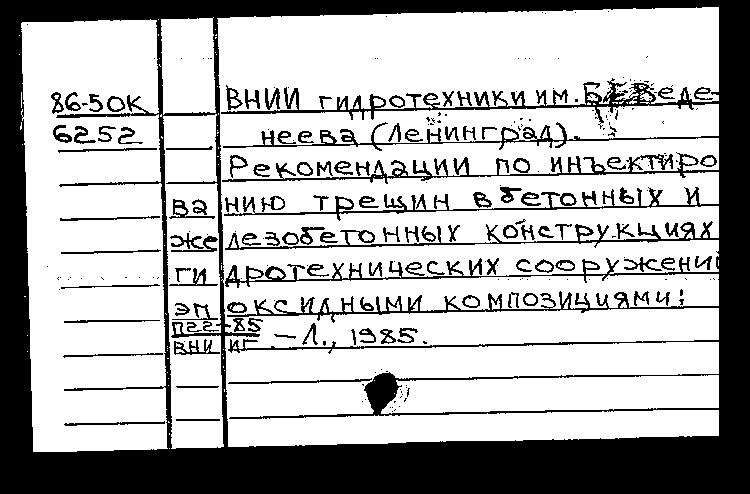 86-5ОК ВНИИ гидротехники им. Б.Е.Веде-
6252 неева (Ленинград).
Рекомендации по инъектиро
ванию трещин в бетонных и
железобетонных конструкциях
гидротехнических сооружений
эпоксидными композициями:
П22-85
ВНИИГ. – Л., 1985.